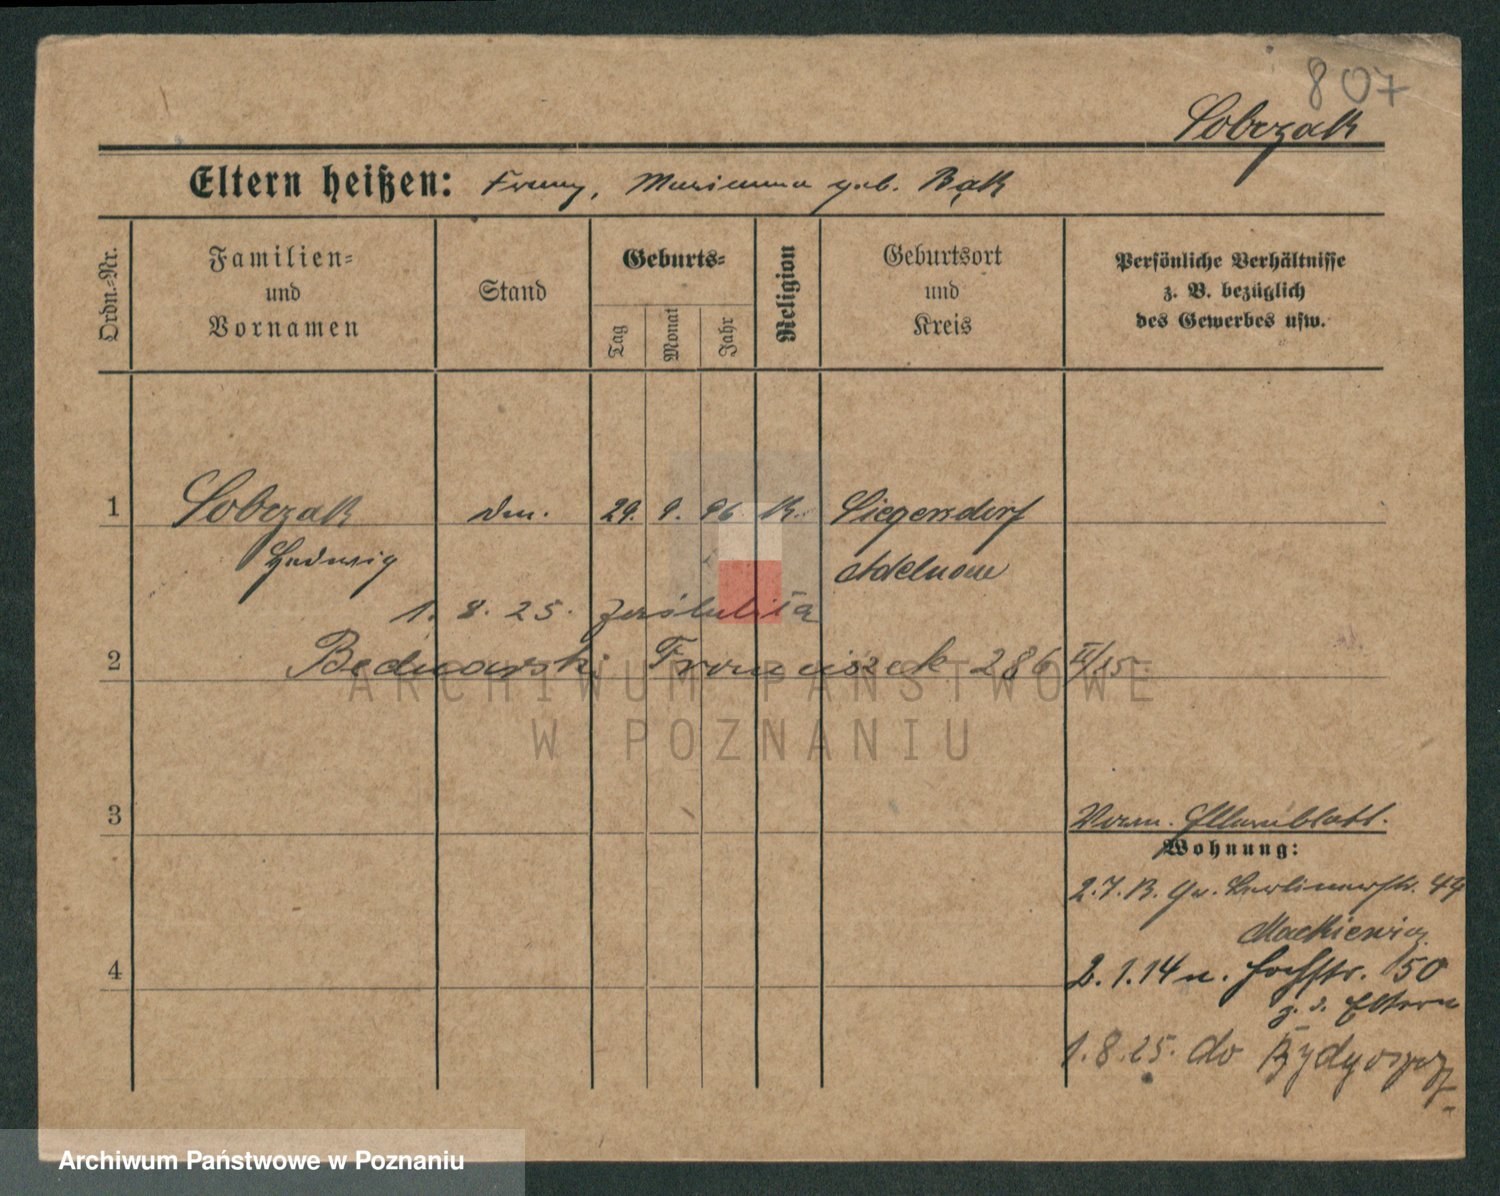 807
Sobczak
Eltern heißen: Franz, Marianna geb. Bąk
Ordn.-Nr.
Familien-
und
Vornamen
Stand
Geburts-
Tag
Monat
Jahr
Religion
Geburtsort
und
Kreis
Persönliche Verhältnisse
z. B. bezüglich
des Gewerbes usw.
1 Sobczak 29. 9. 96 K. Siegersdorf
Hedwig Adelnau
1. 8. 25. zaślubiła
2 Bednarski Franciszek 286 II/15
3
Elternblatt.
Wohnung:
2. 7. 13. Gr. Berlinerstr. 49
Mackiewicz
4 2. 1. 14 n. Hochstr. 150
z. d. Eltern
1. 8. 25. do Bydgoszczy
ARCHIWUM PAŃSTWOWE
W POZNANIU
Archiwum Państwowe w Poznaniu